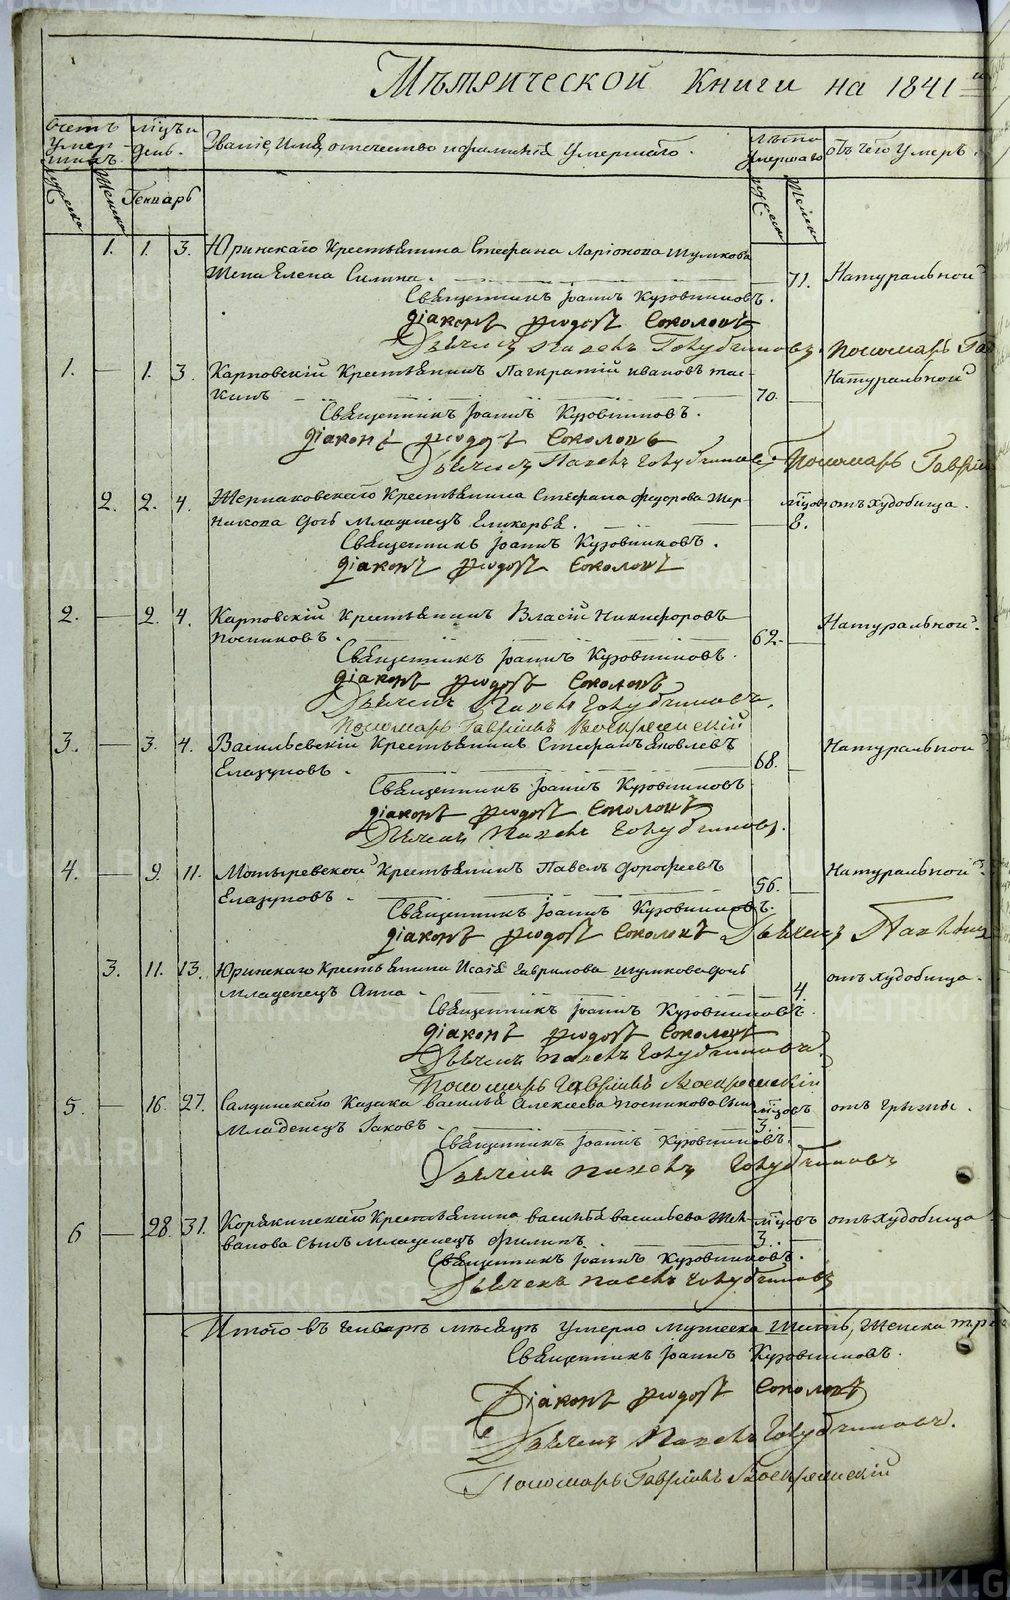 Мѣтрической Книги на 1841
Счетъ умершихъ.
Мѣцъ и день.
Званіе, Имя, отечество и фамилія Умершаго.
Лѣто Умершаго
отъ чего Умеръ.
Мужеска
Женска
Генварь
Мужеска
Женска
1. 1. 3. Юринскаго Крестьянина Стефана Ларіонова Шумкова
Жена Елена Силина. 71. Натуральной
Священникъ Іоаннъ Кузовниковъ.
Діаконъ Ѳеодотъ Соколовъ
Дьячекъ Павелъ Голубчиковъ. Пономарь
1. — 1. 3. Карповскій Крестьянинъ Панкратій Ивановъ Тас-
кинъ 70. Натуральной
Священникъ Іоаннъ Кузовниковъ.
Діаконъ Ѳеодотъ Соколовъ
Дьячекъ Павелъ Голубчиковъ. Пономарь Гавріилъ
2. 2. 4. Крестьянина Стефана Федорова Чер-
никова дочь младенецъ Гликерья. мѣцовъ 8. отъ худобища.
Священникъ Іоаннъ Кузовниковъ.
Діаконъ Ѳеодотъ Соколовъ
2. — 2. 4. Карповскій Крестьянинъ Власій Никифоровъ
Посниковъ. 62. Натуральной.
Священникъ Іоаннъ Кузовниковъ.
Діаконъ Ѳеодотъ Соколовъ
Дьячекъ Павелъ Голубчиковъ.
Пономарь Гавріилъ Воскресенскій
3. — 3. 4. Васильевскій Крестьянинъ Стефанъ Яковлевъ
Глазуновъ. 68. Натуральной
Священникъ Іоаннъ Кузовниковъ
Діаконъ Ѳеодотъ Соколовъ
Дьячекъ Павелъ Голубчиковъ.
4. — 9. 11. Мотыревской Крестьянинъ Павелъ Дорофеевъ
Глазуновъ. 56. Натуральной.
Священникъ Іоаннъ Кузовниковъ.
Діаконъ Ѳеодотъ Соколовъ Дьячекъ Павелъ
3. 11. 13. Юринскаго Крестьянина Исаія Гаврилова Шумкова дочь
младенецъ Анна. 4. отъ худобища.
Священникъ Іоаннъ Кузовниковъ.
Діаконъ Ѳеодотъ Соколовъ
Дьячекъ Павелъ Голубчиковъ.
Пономарь Гавріилъ Воскресенскій
5. — 16. 27. Салдинскаго Казака Василья Алексѣева Посникова сынъ
младенецъ Іаковъ. мѣцовъ 3. отъ грыжы.
Священникъ Іоаннъ Кузовниковъ.
Дьячекъ Павелъ Голубчиковъ
6 — 28. 31. Корякинскаго Крестьянина Василья Васильева
сынъ младенецъ Филипъ. мѣцовъ 3. отъ худобища
Священникъ Іоаннъ Кузовниковъ.
Дьячекъ Павелъ Голубчиковъ
Итого въ Генварѣ мѣсяцѣ умерло мужеска шесть, женска
Священникъ Іоаннъ Кузовниковъ.
Діаконъ Ѳеодотъ Соколовъ
Дьячекъ Павелъ Голубчиковъ.
Пономарь Гавріилъ Воскресенскій
METRIKI.GASO-URAL.RU